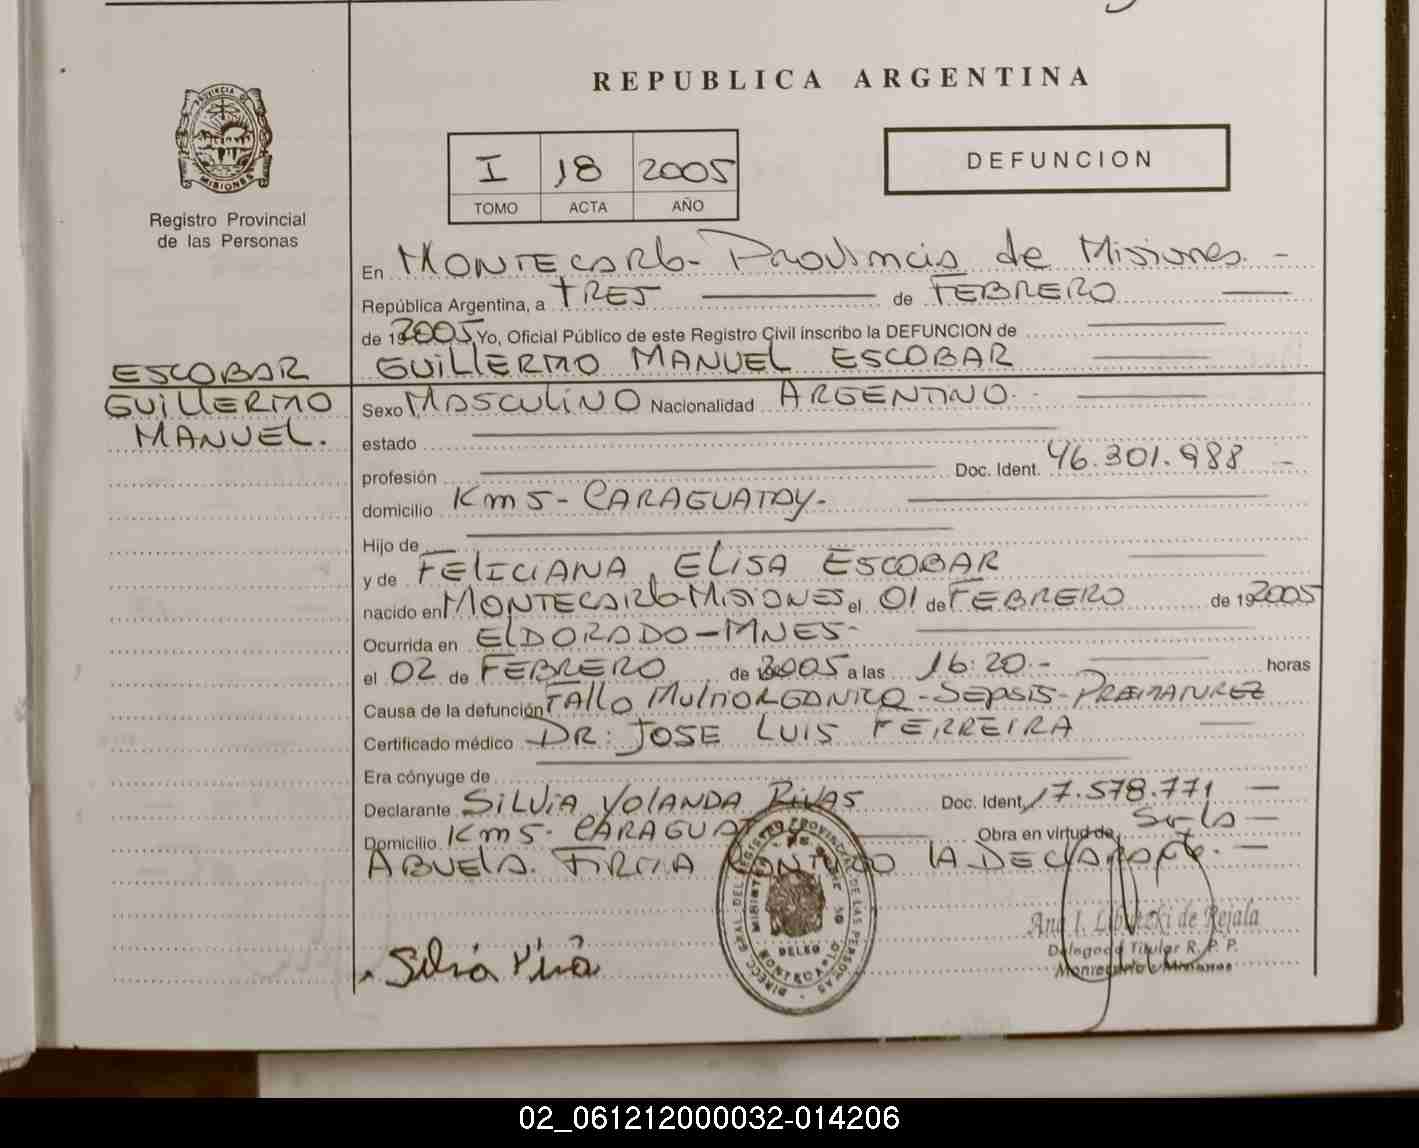 REPUBLICA ARGENTINA
PROVINCIA DE
MISIONES
Registro Provincial
de las Personas
I 18 2005
TOMO ACTA AÑO
DEFUNCION
En MONTECARLO - Provincia de Misiones. -
República Argentina, a TRES de FEBRERO
de 19 2005 Yo, Oficial Público de este Registro Civil inscribo la DEFUNCION de
GUILLERMO MANUEL ESCOBAR
ESCOBAR
GUILLERMO
MANUEL.
Sexo MASCULINO Nacionalidad ARGENTINO.
estado
profesión Doc. Ident. 46.301.988 -
domicilio Km 5 - CARAGUATAY.
Hijo de
y de FELICIANA ELISA ESCOBAR
nacido en MONTECARLO-MISIONES el 01 de FEBRERO de 19 2005
Ocurrida en ELDORADO-MNES-
el 02 de FEBRERO de 2005 a las 16:20.- horas
Causa de la defunción FALLO MULTIORGANICO - SEPSIS - PREMATUREZ
Certificado médico DR: JOSE LUIS FERREIRA
Era cónyuge de
Declarante SILVIA YOLANDA RIVAS Doc. Ident. 17.578.771 -
Domicilio Km 5 - CARAGUATAY Obra en virtud de Ser la -
ABUELA. FIRMA CONMIGO LA DECLARANTE. -
DIRECC. GRAL. DEL REGISTRO PROVINCIAL DE LAS PERSONAS
MONTECARLO
Ana I. de Rejala
Delegada Titular R. P. P.
Montecarlo - Misiones
02_061212000032-014206